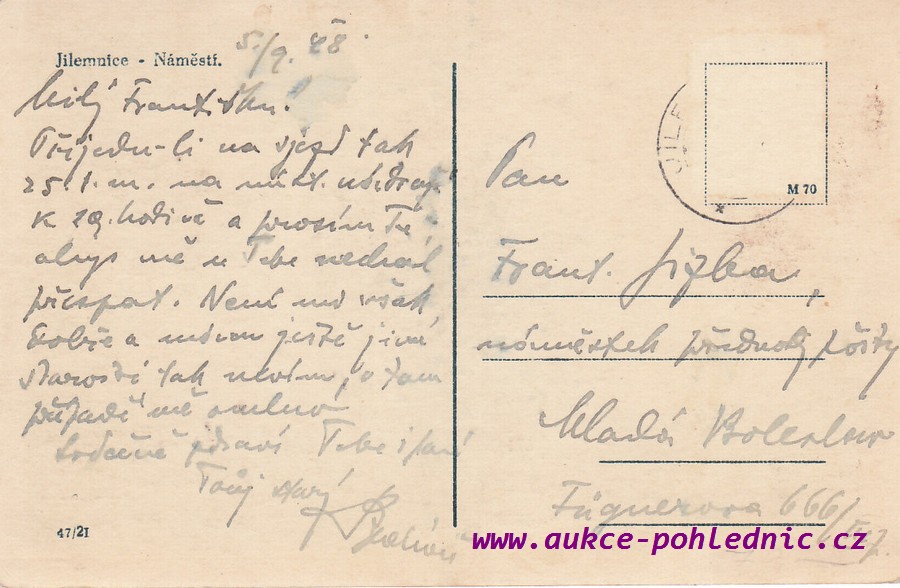 Jilemnice - Náměstí.
5./9. 48.
Milý Františku!
Přijedu-li na sjezd tak
25. t. m. na
k 19. hodině a prosím Tě,
abys mě u Tebe nechal
přespat. Není mi však
dobře a mám ještě jiné
starosti tak nevím, v tom
případě mě omluv
Srdečně zdraví Tebe i paní
Tvůj starý
47/21
JILE
M 70
Pan
Frant. Jizba,
náměstek přednosty pošty
Mladá Boleslav
Fügnerova 666/
www.aukce-pohlednic.cz